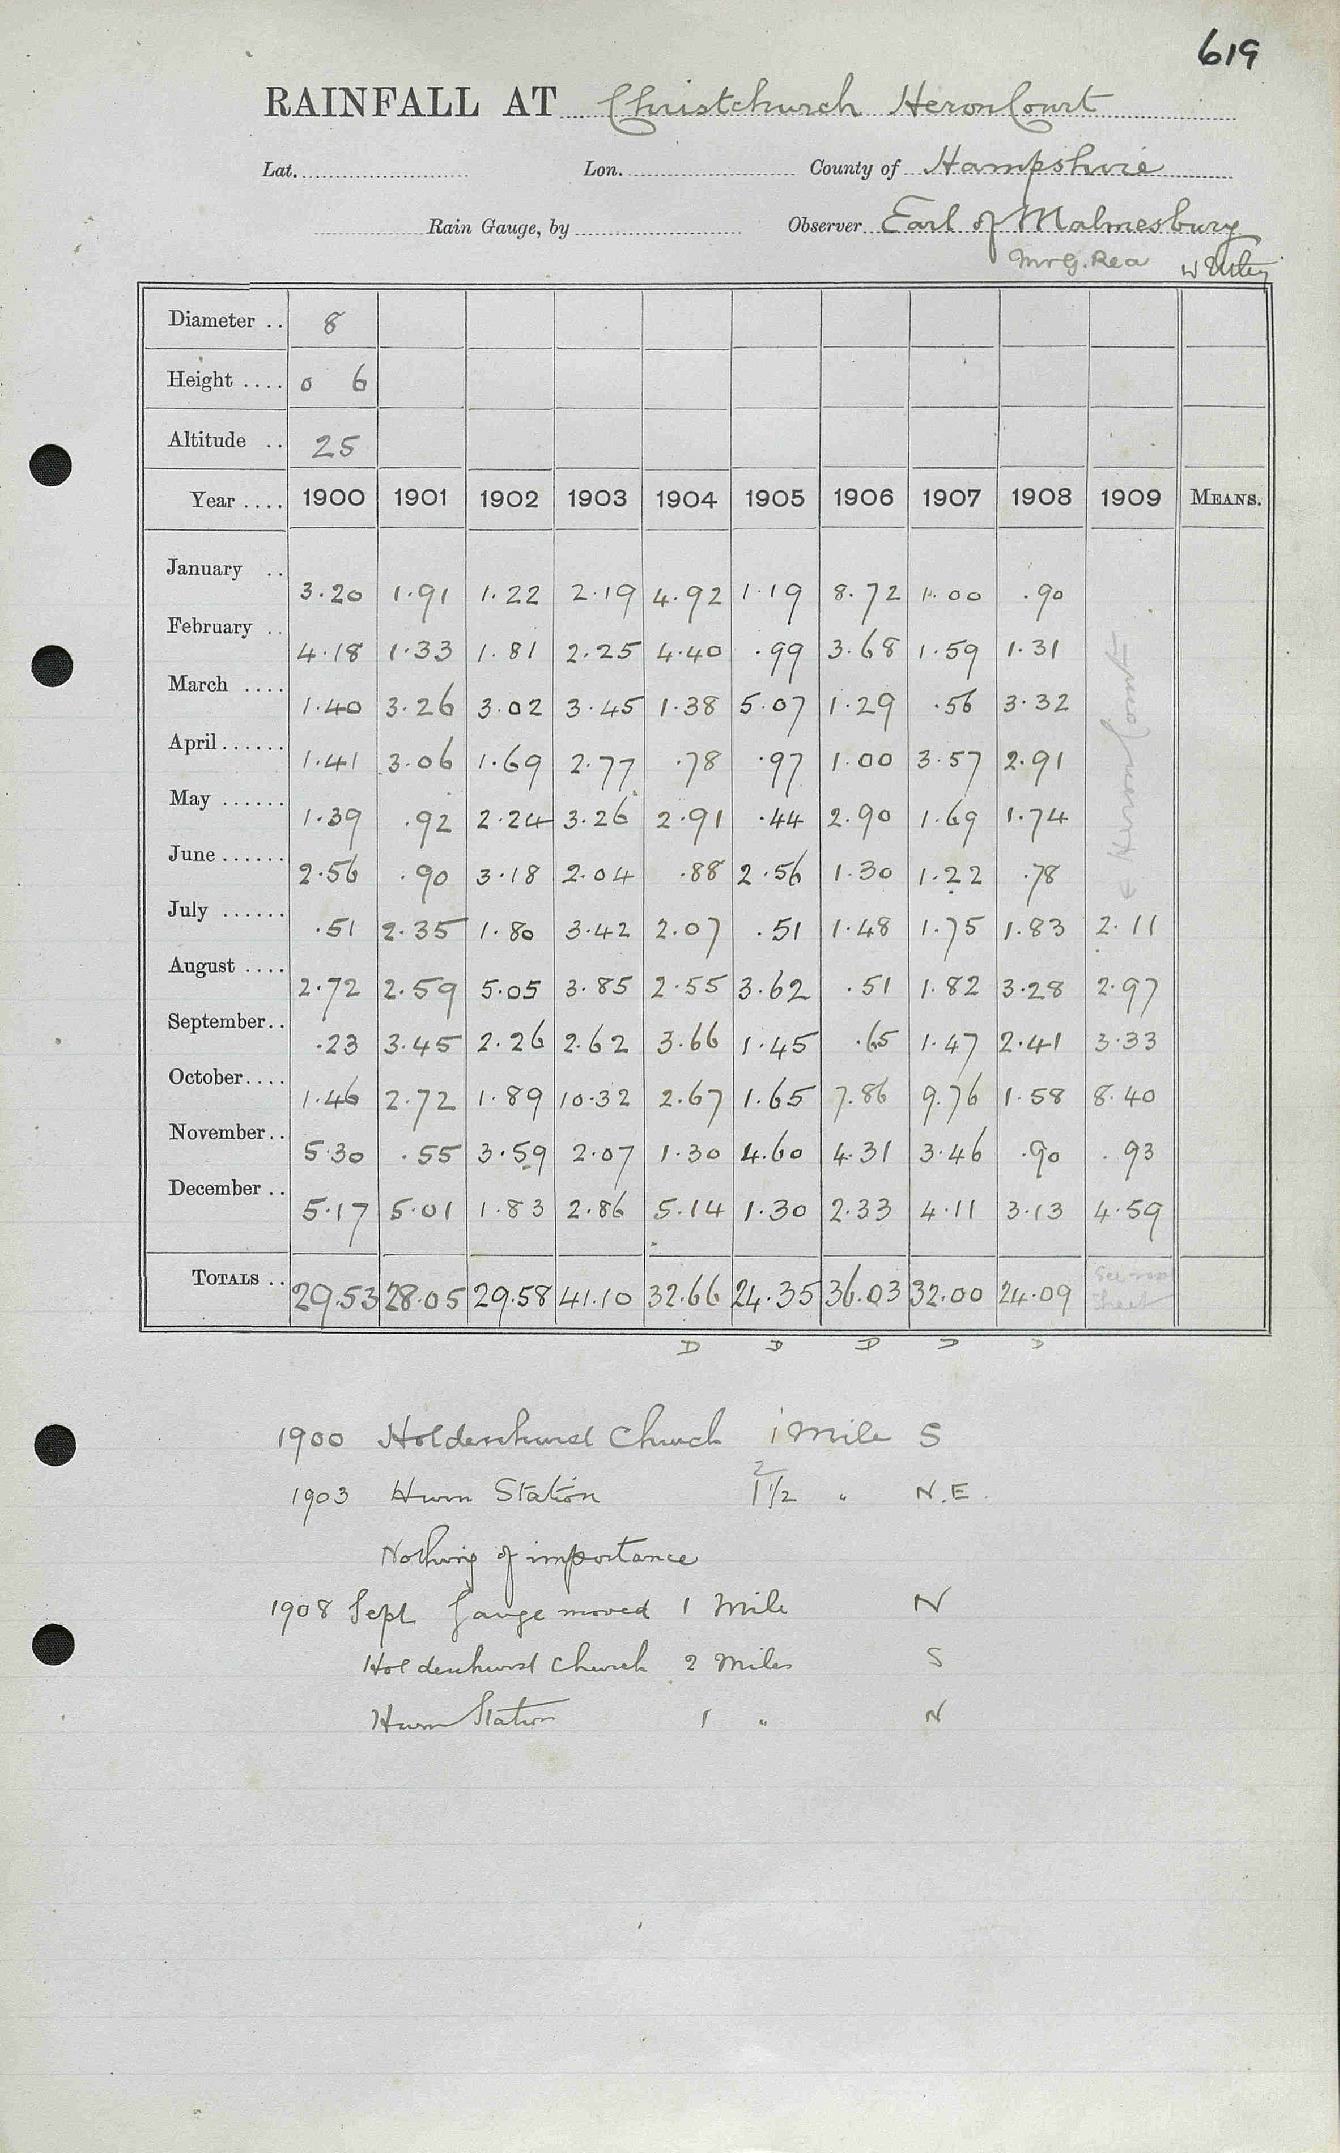 619
RAINFALL AT Christchurch Heron Court
Lat. Lon. County of Hampshire
Rain Gauge, by Observer Earl of Malmesbury
Mr G. Rea
Diameter .. 8
Height .... 0 6
Altitude .. 25
Year .... 1900 1901 1902 1903 1904 1905 1906 1907 1908 1909 MEANS.
January .. 3.20 1.91 1.22 2.19 4.92 1.19 8.72 1.00 .90
February .. 4.18 1.33 1.81 2.25 4.40 .99 3.68 1.59 1.31
March .... 1.40 3.26 3.02 3.45 1.38 5.07 1.29 .56 3.32
April ...... 1.41 3.06 1.69 2.77 .78 .97 1.00 3.57 2.91
May ...... 1.39 .92 2.24 3.26 2.91 .44 2.90 1.69 1.74
June ...... 2.56 .90 3.18 2.04 .88 2.56 1.30 1.22 .78
July ...... .51 2.35 1.80 3.42 2.07 .51 1.48 1.75 1.83 2.11
August .... 2.72 2.59 5.05 3.85 2.55 3.62 .51 1.82 3.28 2.97
September.. .23 3.45 2.26 2.62 3.66 1.45 .65 1.47 2.41 3.33
October.... 1.46 2.72 1.89 10.32 2.67 1.65 7.86 9.76 1.58 8.40
November.. 5.30 .55 3.59 2.07 1.30 4.60 4.31 3.46 .90 .93
December .. 5.17 5.01 1.83 2.86 5.14 1.30 2.33 4.11 3.13 4.59
Heron Court
TOTALS .. 29.53 28.05 29.58 41.10 32.66 24.35 36.03 32.00 24.09 See Sheet
D D D D D
1900 Holdenhurst Church 1 Mile S
2
1903 Hurn Station 1½ " N.E.
Nothing of importance
1908 Sept Gauge moved 1 Mile N
Holdenhurst Church 2 Miles S
Hurn Station 1 " N